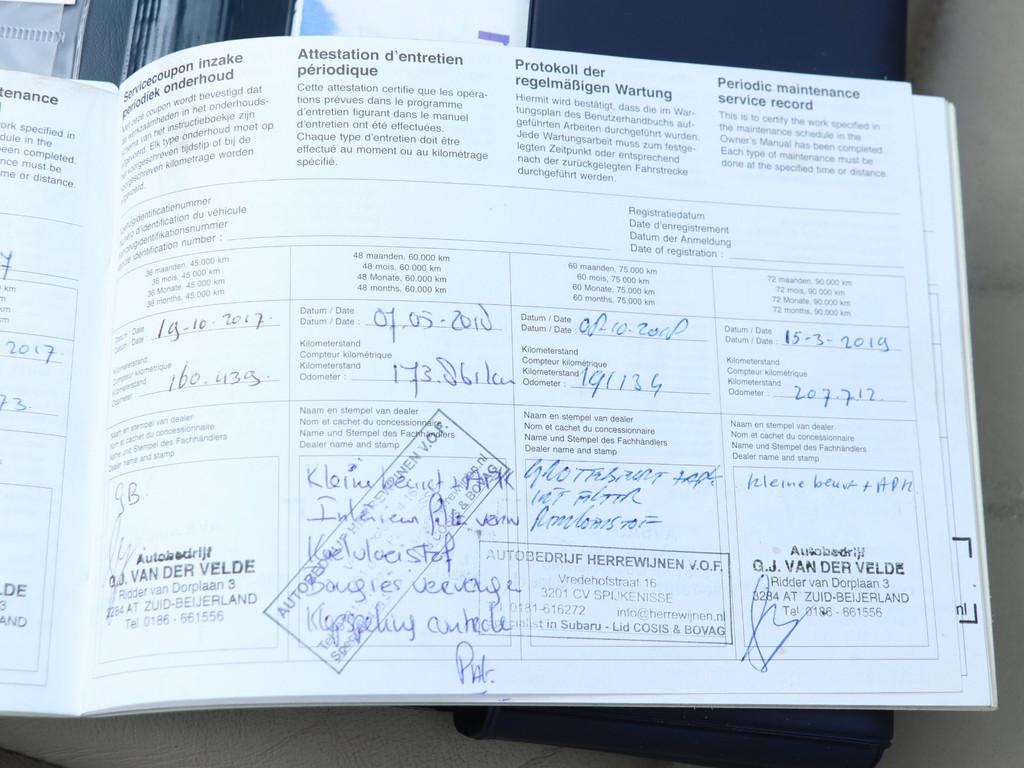 tenance
ork specified in
dule in the
been completed.
nce must be
me or distance.
2017
73.
DE
AND
Servicecoupon inzake
periodiek onderhoud
coupon wordt bevestigd dat
werkzaamheden in het onderhouds-
schema van het instructieboekje zijn
uitgevoerd. Elk type onderhoud moet op
voorgeschreven tijdstip of bij de
voorgeschreven kilometrage worden
uitgevoerd.
Attestation d'entretien
périodique
Cette attestation certifie que les opéra-
tions prévues dans le programme
d'entretien figurant dans le manuel
d'entretien ont été effectuées.
Chaque type d'entretien doit être
effectué au moment ou au kilométrage
spécifié.
Protokoll der
regelmäßigen Wartung
Hiermit wird bestätigt, dass die im War-
tungsplan des Benutzerhandbuchs auf-
geführten Arbeiten durchgeführt wurden.
Jede Wartungsarbeit muss zum festge-
legten Zeitpunkt oder entsprechend
nach der zurückgelegten Fahrstrecke
durchgeführt werden.
Periodic maintenance
service record
This is to certify the work specified in
the maintenance schedule in the
Owner's Manual has been completed.
Each type of maintenance must be
done at the specified time or distance.
d'identification du véhicule
identification number :
Registratiedatum
Date d'enregistrement
Datum der Anmeldung
Date of registration :
36 maanden, 45.000 km
36 mois, 45 000 km
36 Monate, 45.000 km
36 months, 45.000 km
Datum / Date
Datum / Date : 19-10-2017.
Kilometerstand
Compteur kilométrique
Kilometerstand
Odometer : 160.439.
Naam en stempel van dealer
Nom et cachet du concessionnaire
Name und Stempel des Fachhändlers
Dealer name and stamp
GB.
Autobedrijf
G.J. VAN DER VELDE
Ridder van Dorplaan 3
3284 AT ZUID-BEIJERLAND
Tel 0186 - 661556
48 maanden, 60.000 km
48 mois, 60 000 km
48 Monate, 60.000 km
48 months, 60.000 km
Datum / Date
Datum / Date : 07-05-2018
Kilometerstand
Compteur kilométrique
Kilometerstand
Odometer : 173.861km
Naam en stempel van dealer
Nom et cachet du concessionnaire
Name und Stempel des Fachhändlers
Dealer name and stamp
Kleine beurt + APK
Interieur
Koelvloeistof
Bougies
Klepspeling controle
60 maanden, 75.000 km
60 mois, 75 000 km
60 Monate, 75.000 km
60 months, 75.000 km
Datum / Date
Datum / Date : 08-10-2018
Kilometerstand
Compteur kilométrique
Kilometerstand
Odometer : 191134
Naam en stempel van dealer
Nom et cachet du concessionnaire
Name und Stempel des Fachhändlers
Dealer name and stamp
GROTEBEURT + APK
INT FILTER
AUTOBEDRIJF HERREWIJNEN V.O.F.
Vredehofstraat 16
3201 CV SPIJKENISSE
0181-616272 info@herrewijnen.nl
Specialist in Subaru - Lid COSIS & BOVAG
72 maanden, 90.000 km
72 mois, 90 000 km
72 Monate, 90.000 km
72 months, 90.000 km
Datum / Date
Datum / Date : 15-3-2019
Kilometerstand
Compteur kilométrique
Kilometerstand
Odometer : 207.712.
Naam en stempel van dealer
Nom et cachet du concessionnaire
Name und Stempel des Fachhändlers
Dealer name and stamp
kleine beurt + APK
Autobedrijf
G.J. VAN DER VELDE
Ridder van Dorplaan 3
3284 AT ZUID-BEIJERLAND
Tel 0186 - 661556
nl